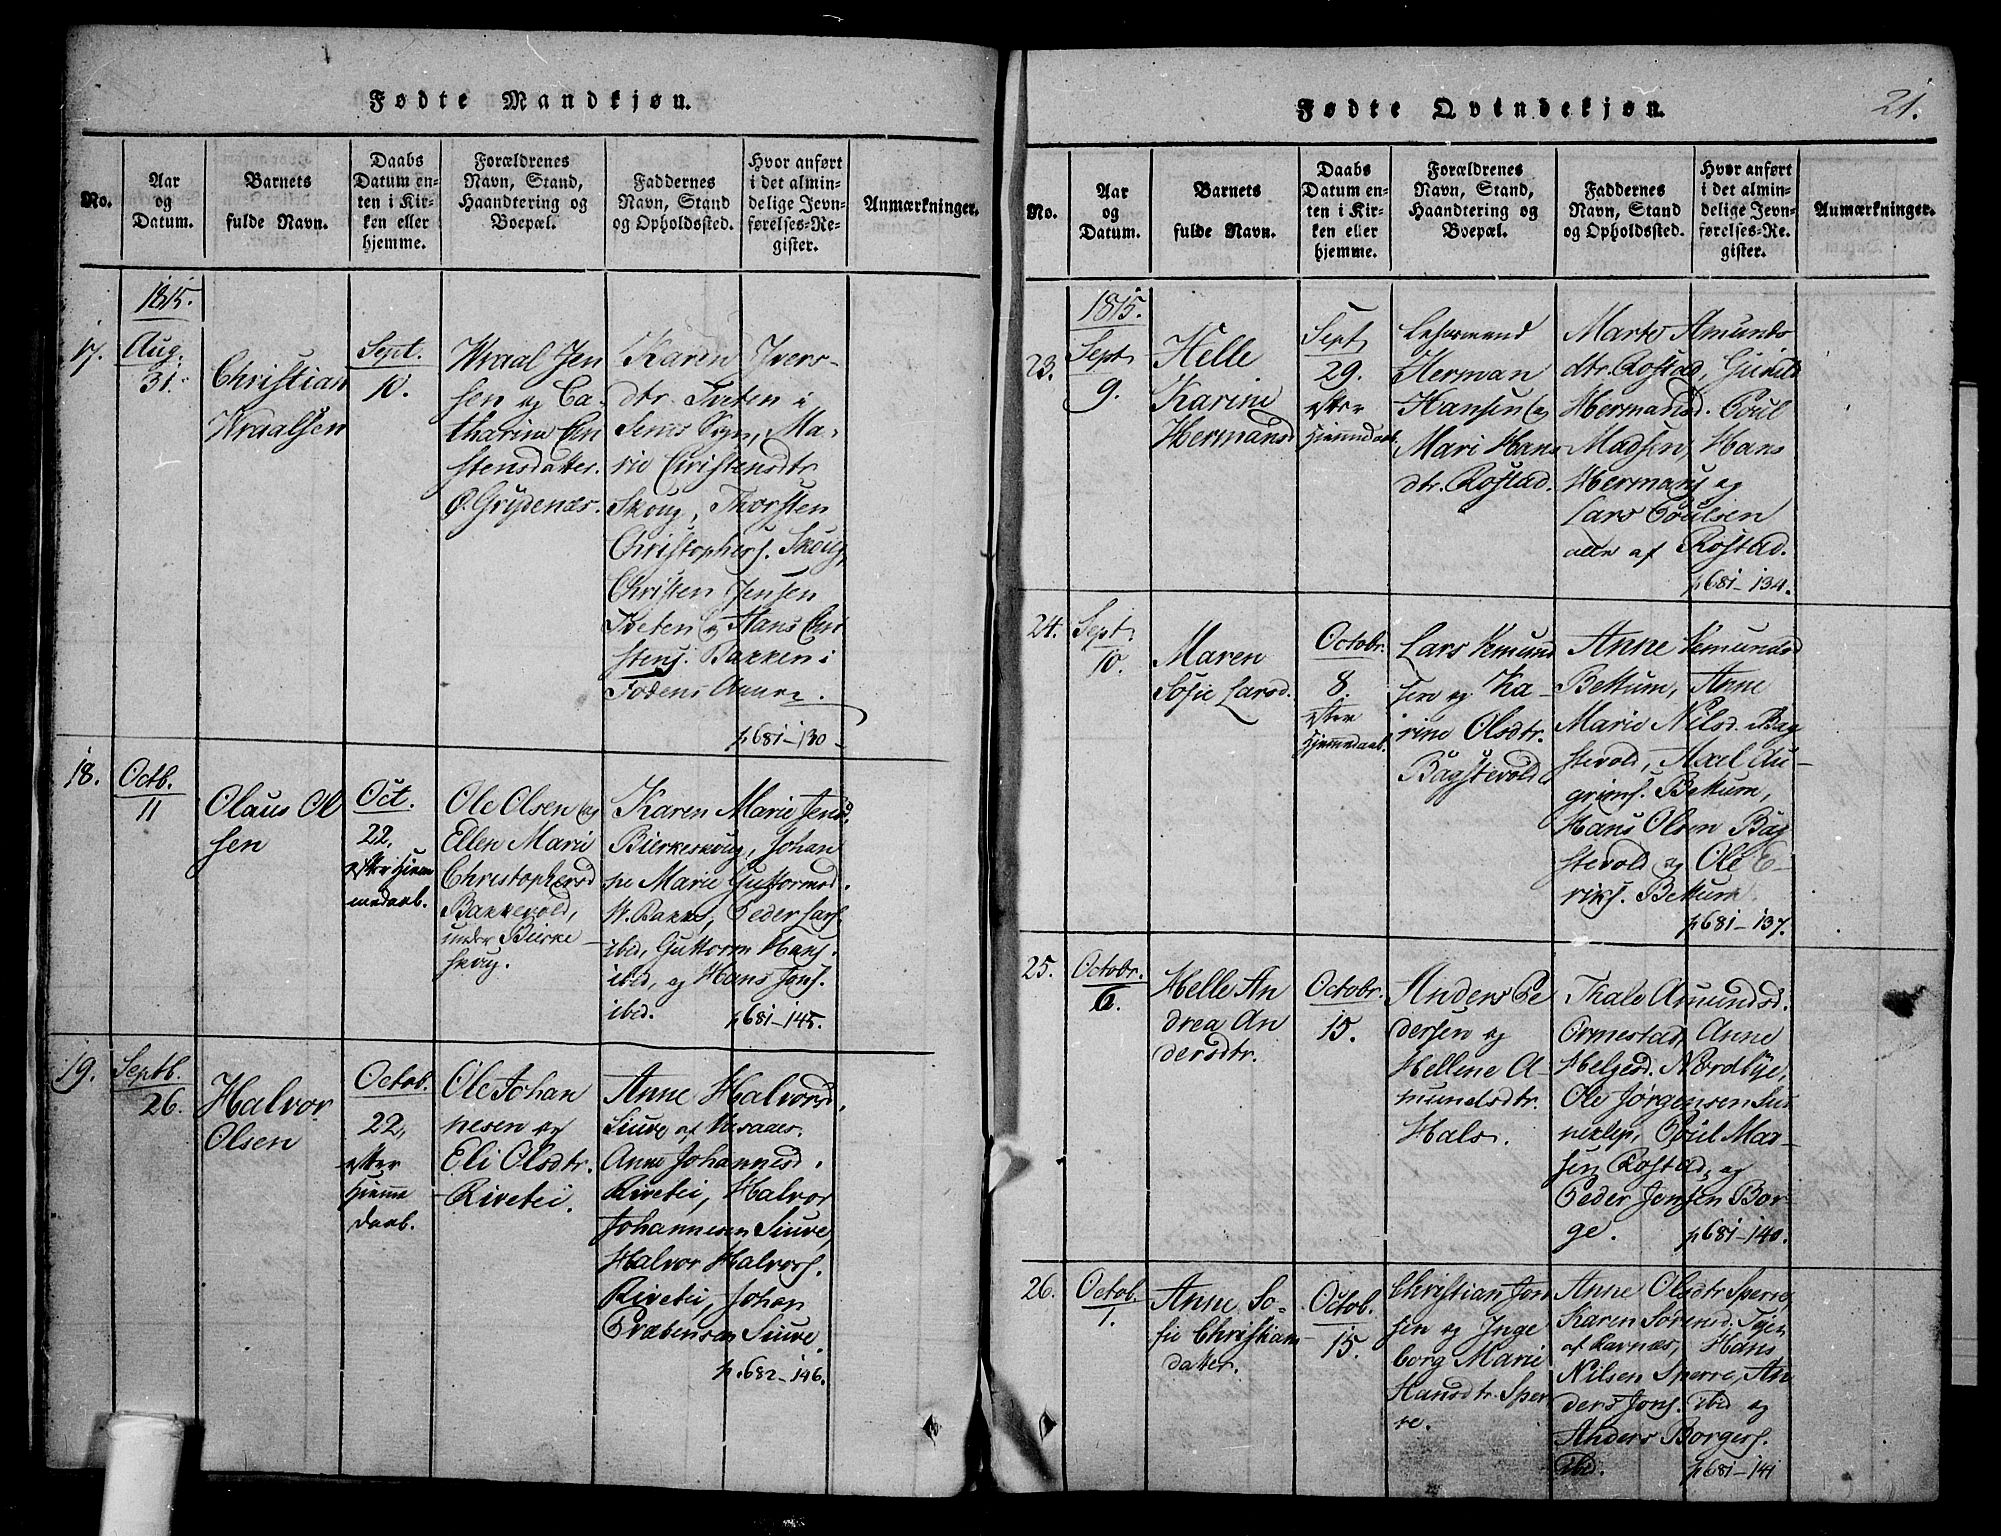 Fødte Mandkjøn.
No.
Aar
og
Datum.
Barnets
fulde Navn.
Daabs
Datum en-
ten i Kir-
ken eller
hjemme.
Forældrenes
Navn, Stand,
Haandtering og
Boepæl.
Faddernes
Navn, Stand
og Opholdssted.
Hvor anført
i det almin-
delige Jevn-
førelses-Re-
gister.
Anmærkninger.
17.
1815.
Aug.
31.
Christian
Wraalsen
Sept.
10.
Wraal Jen
sen og Ca-
tharina Chri
stensdatter.
Ø. Grydenæs.
Karen Ivers-
dtr. Tveten i
Senes Sogn, Ma-
rie Christensdtr
Skoug, Thorsten
Christophers. Skoug,
Christen Jensen
Tveten og Hans Chri
stens. Bakken i
p681-130
18.
Octb.
11
Olaus Ol
sen
Oct.
22,
efter Hjem
medaab.
Ole Olsen og
Ellen Marie
Christophersd
Bakkevold,
under Birke
skoug.
Karen Marie Jensd.
Birkeskoug, Johan
ne Marie Guttormsd.
N. Bakke, Peder Lars.
ibid, Guttorm Hans.
ibid, og Hans Jons.
ibid.
p681-145.
19.
Septb.
26.
Halvor
Olsen
Octob.
22,
efter
Hjemme
daab.
Ole Johan
nesen og
Eli Olsdtr.
Rivetei.
Anne Halvorsd.
Siuve af Aasaaer.
Anne Johannesd.
Rivetei, Halvor
Johannesen Siuve,
Halvor Halvors.
Rivetei, Johan
Præbensen Siuve.
p.682-146.
Fødte Qvindekjøn.
21.
No.
Aar
og
Datum.
Barnets
fulde Navn.
Daabs
Datum en-
ten i Kir-
ken eller
hjemme.
Forældrenes
Navn, Stand,
Haandtering og
Boepæl.
Faddernes
Navn, Stand
og Opholdssted.
Hvor anført
i det almin-
delige Jevn-
førelses-Re-
gister.
Anmærkninger.
23.
1815.
Sept
9.
Helle
Karine
Hermansd
Sept
29.
efter
Hjemmdaab.
Herman
Hansen og
Mari Hans
dtr. Rostad.
Marte Amunds
dtr. Rostad, Gunild
Hermansd. Poul
Madsen, Hans
Hermans og
Lars Poulsen
alle af Rostad.
p681-134.
24.
Sept
10.
Maren
Sofie Larsd.
Octobr.
8.
efter
Hjemmedaab.
Lars Amund
sen og Ka-
rine Olsdtr.
Bagstevold
Anne Amundsd
Bettum, Anne
Marie Nilsd. Bag
stevold, Axel Au-
grims. Bettum,
Hans Olsen Bag
stevold og Ole E-
riks. Bettum.
p681-137.
25.
Octobr.
6.
Helle An
drea An
dersdtr.
Octobr.
15.
Anders Pe
dersen og
Hellene A-
mundsdtr.
Hals.
Thale Amundsd.
Ormestad, Anne
Helgesd. Nordbye,
Ole Jørgensen Sun
neklep, Poul Mar-
sen Rostad, og
Peder Jensen Bor-
ge.
p681-140.
26.
Octob.
1.
Anne So-
fie Christians
datter.
Octob.
15.
Christian Jon
sen og Inge
borg Marie
Hansdtr. Sper
re.
Anne Olsdtr Sperre,
Karen Sørensd. Tøien
af Ravnæs, Hans
Nilsen Sperre, An
ders Jons. ibid og
Anders Borgers.
ibid.
p681-141